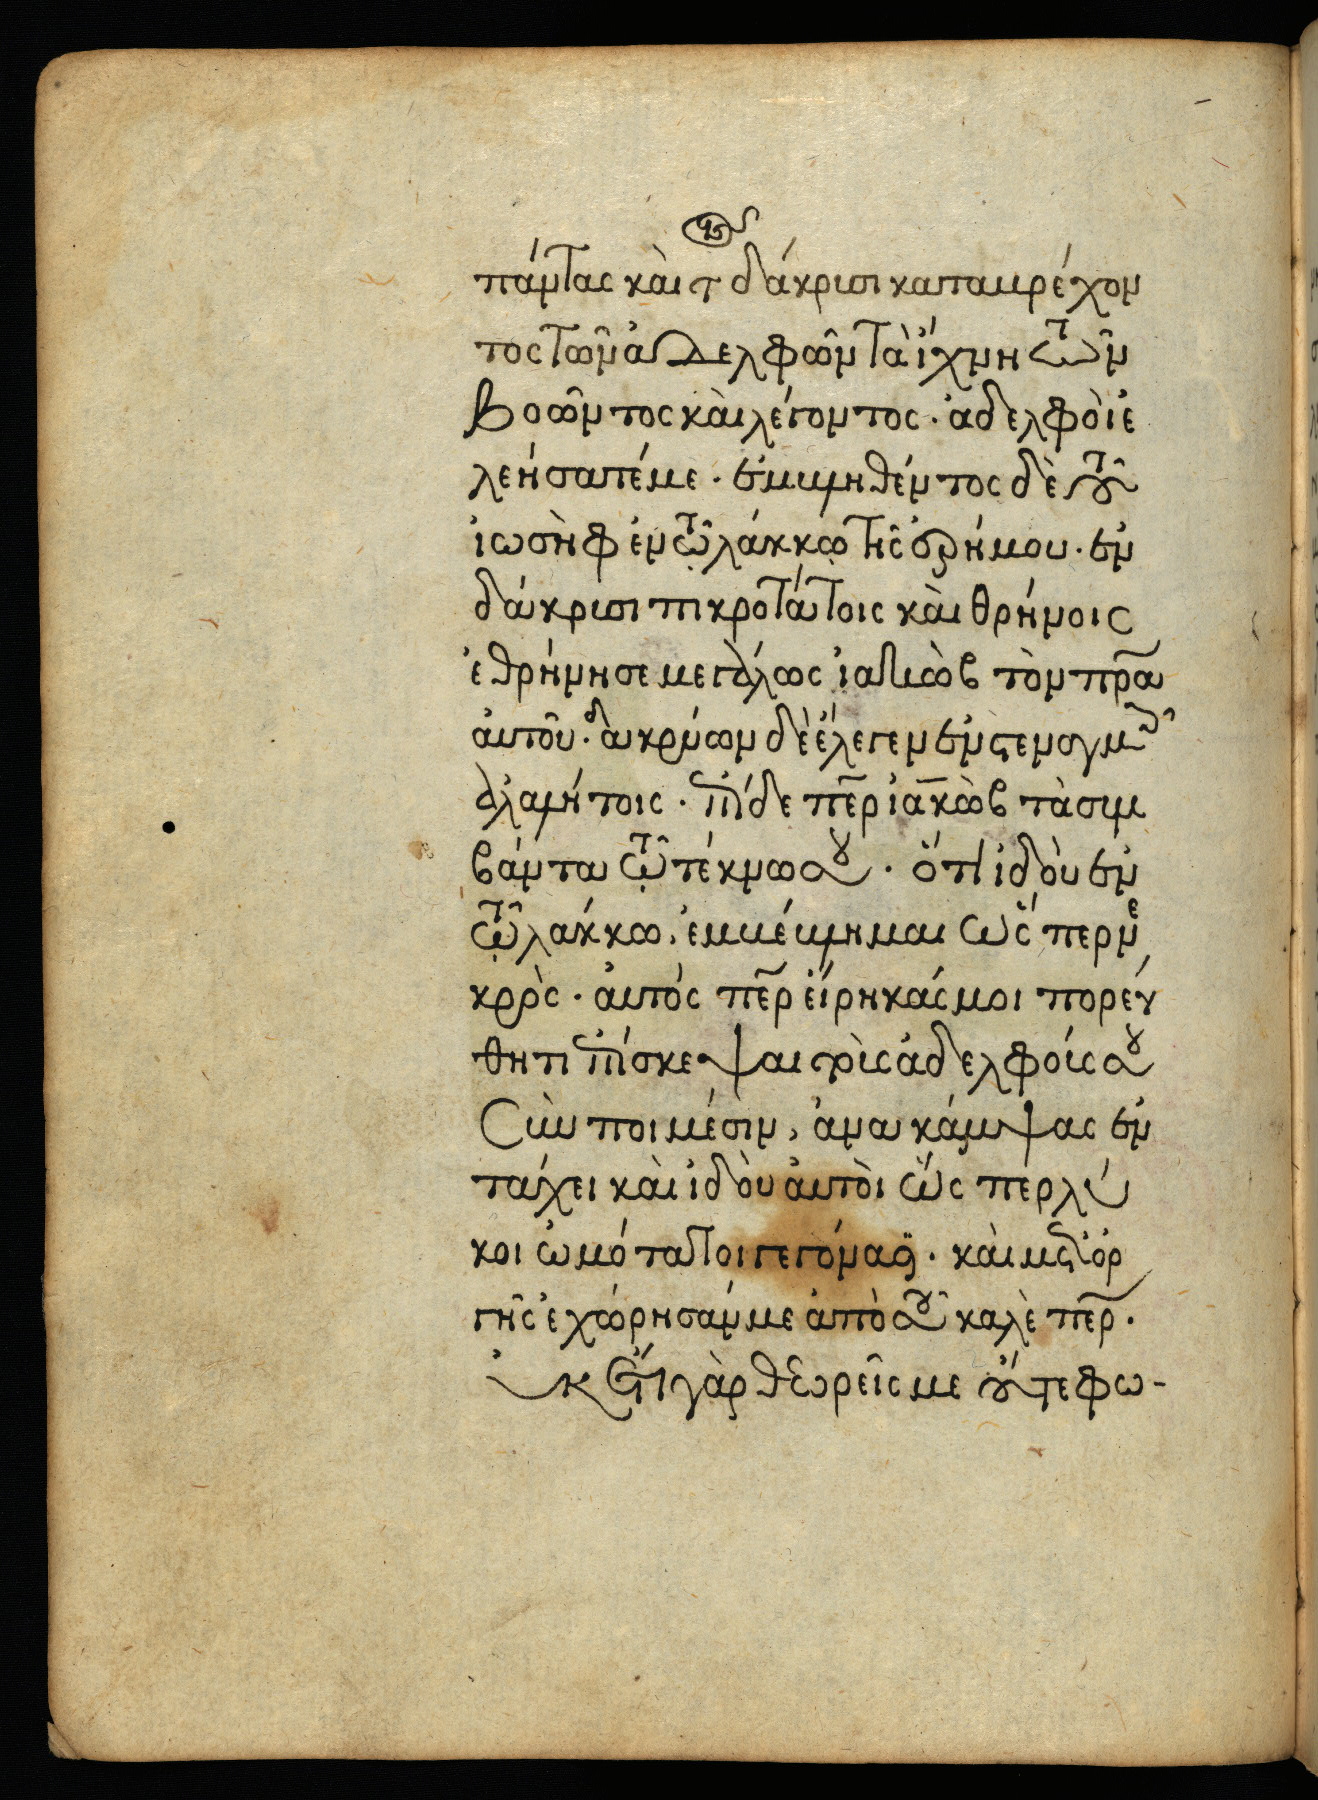 πάντας καὶ τ δάκρυσι καταυρέχον
τος τῶν ἀδελφῶν τὰ ἴχνη τῶν
βοῶντος καὶ λέγοντος · ἀδελφοὶ ἐ
λεήσατέ με · ἐμνηθέντος δὲ τοῦ
ἰωσὴφ ἐν τῷ λάκκῳ τῆς ἐρήμου · ἐν
δάκρυσι πικροτάτοις καὶ θρήνοις
ἐθρήνησε μεγάλως ἰακὼβ τὸν πρα
αὐτοῦ · δακρύων δὲ ἔλεγεν ἐν στεναγμοῖς
ἀλαλήτοις · ἴδε περ ἰακὼβ τὰ συμ
βάντα τῷ τέκνω σου · ὅτι ἰδοὺ ἐν
τῷ λάκκω, ἐμβέβλημαι ὥσπερ νε
κρὸς · αὐτός περ εἴρηκάς μοι πορεύ
θητι ἐπίσκεψαι τοὺς ἀδελφούς σου
σὺν ποιμέσιν, ἀνακάμψας ἐν
τάχει καὶ ἰδοὺ αὐτοὶ ὥς περ λύ
κοι ὠμότατοι γεγόνασι · καὶ μετ ὀρ
γῆς ἐχώρησάν με ἀπὸ σοῦ καλὲ περ ·
οὐκ ἔτι γὰρ θεωρεῖς με οὔτε φω-